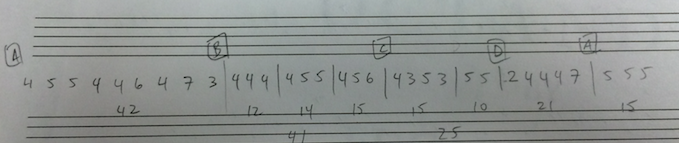 A B C D A
4 5 5 4 4 6 4 7 3 | 4 4 4 | 4 5 5 | 4 5 6 | 4 3 5 3 | 5 5 | 2 4 4 4 7 | 5 5 5
42 12 14 15 15 10 21 15
41 25